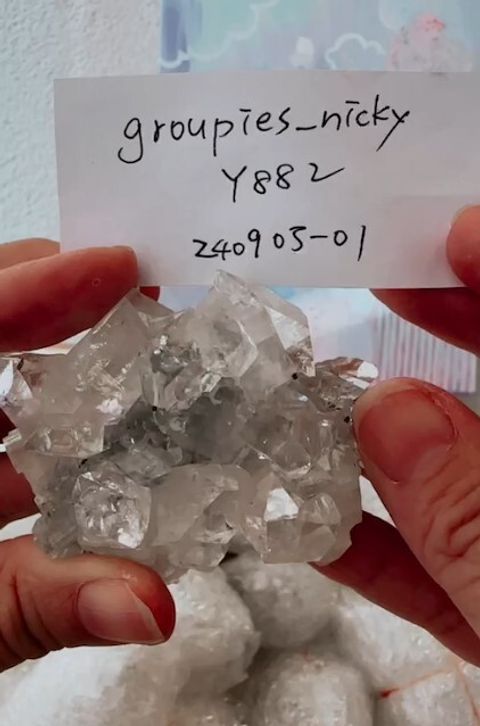 groupies_nicky
Y882
240905-01